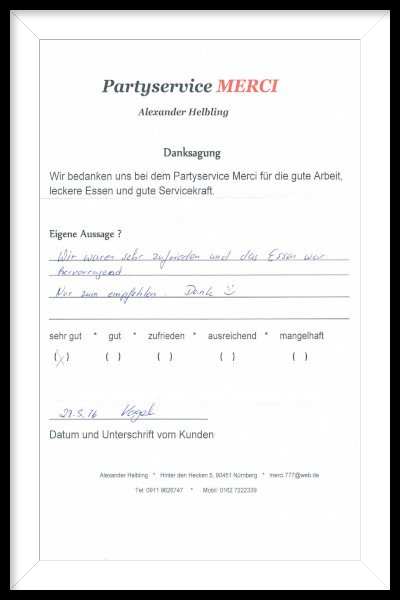 Partyservice MERCI
Alexander Helbling
Danksagung
Wir bedanken uns bei dem Partyservice Merci für die gute Arbeit,
leckere Essen und gute Servicekraft.
Eigene Aussage ?
Wir waren sehr zufrieden und das Essen war
hervorragend
Nur zum empfehlen. Danke ☺
sehr gut * gut * zufrieden * ausreichend * mangelhaft
(X) ( ) ( ) ( ) ( )
28.5.16 Vogel
Datum und Unterschrift vom Kunden
Alexander Helbling * Hinter den Hecken 5, 90451 Nürnberg * merci.777@web.de
Tel: 0911 9626747 * Mobil: 0162 7222339